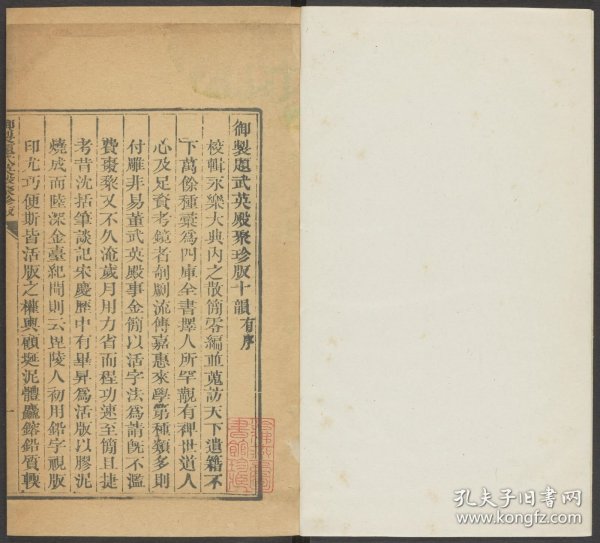 御製題武英殿聚珍版十韻有序
校輯永樂大典內之散簡零編並蒐訪天下遺籍不
下萬餘種彙爲四庫全書擇人所罕覯有裨世道人
心及足資考鏡者剞劂流傳嘉惠來學第種類多則
付雕非易董武英殿事金簡以活字法爲請旣不濫
費棗棃又不久淹歲月用力省而程功速至簡且捷
考昔沈括筆談記宋慶歷中有畢昇爲活版以膠泥
燒成而陸深金臺紀聞則云毘陵人初用鉛字視版
印尤巧便斯皆活版之權輿顧埏泥體麤鎔鉛質輭
御製題武英殿聚珍版
一
孔夫子旧书网
www.kongfz.com